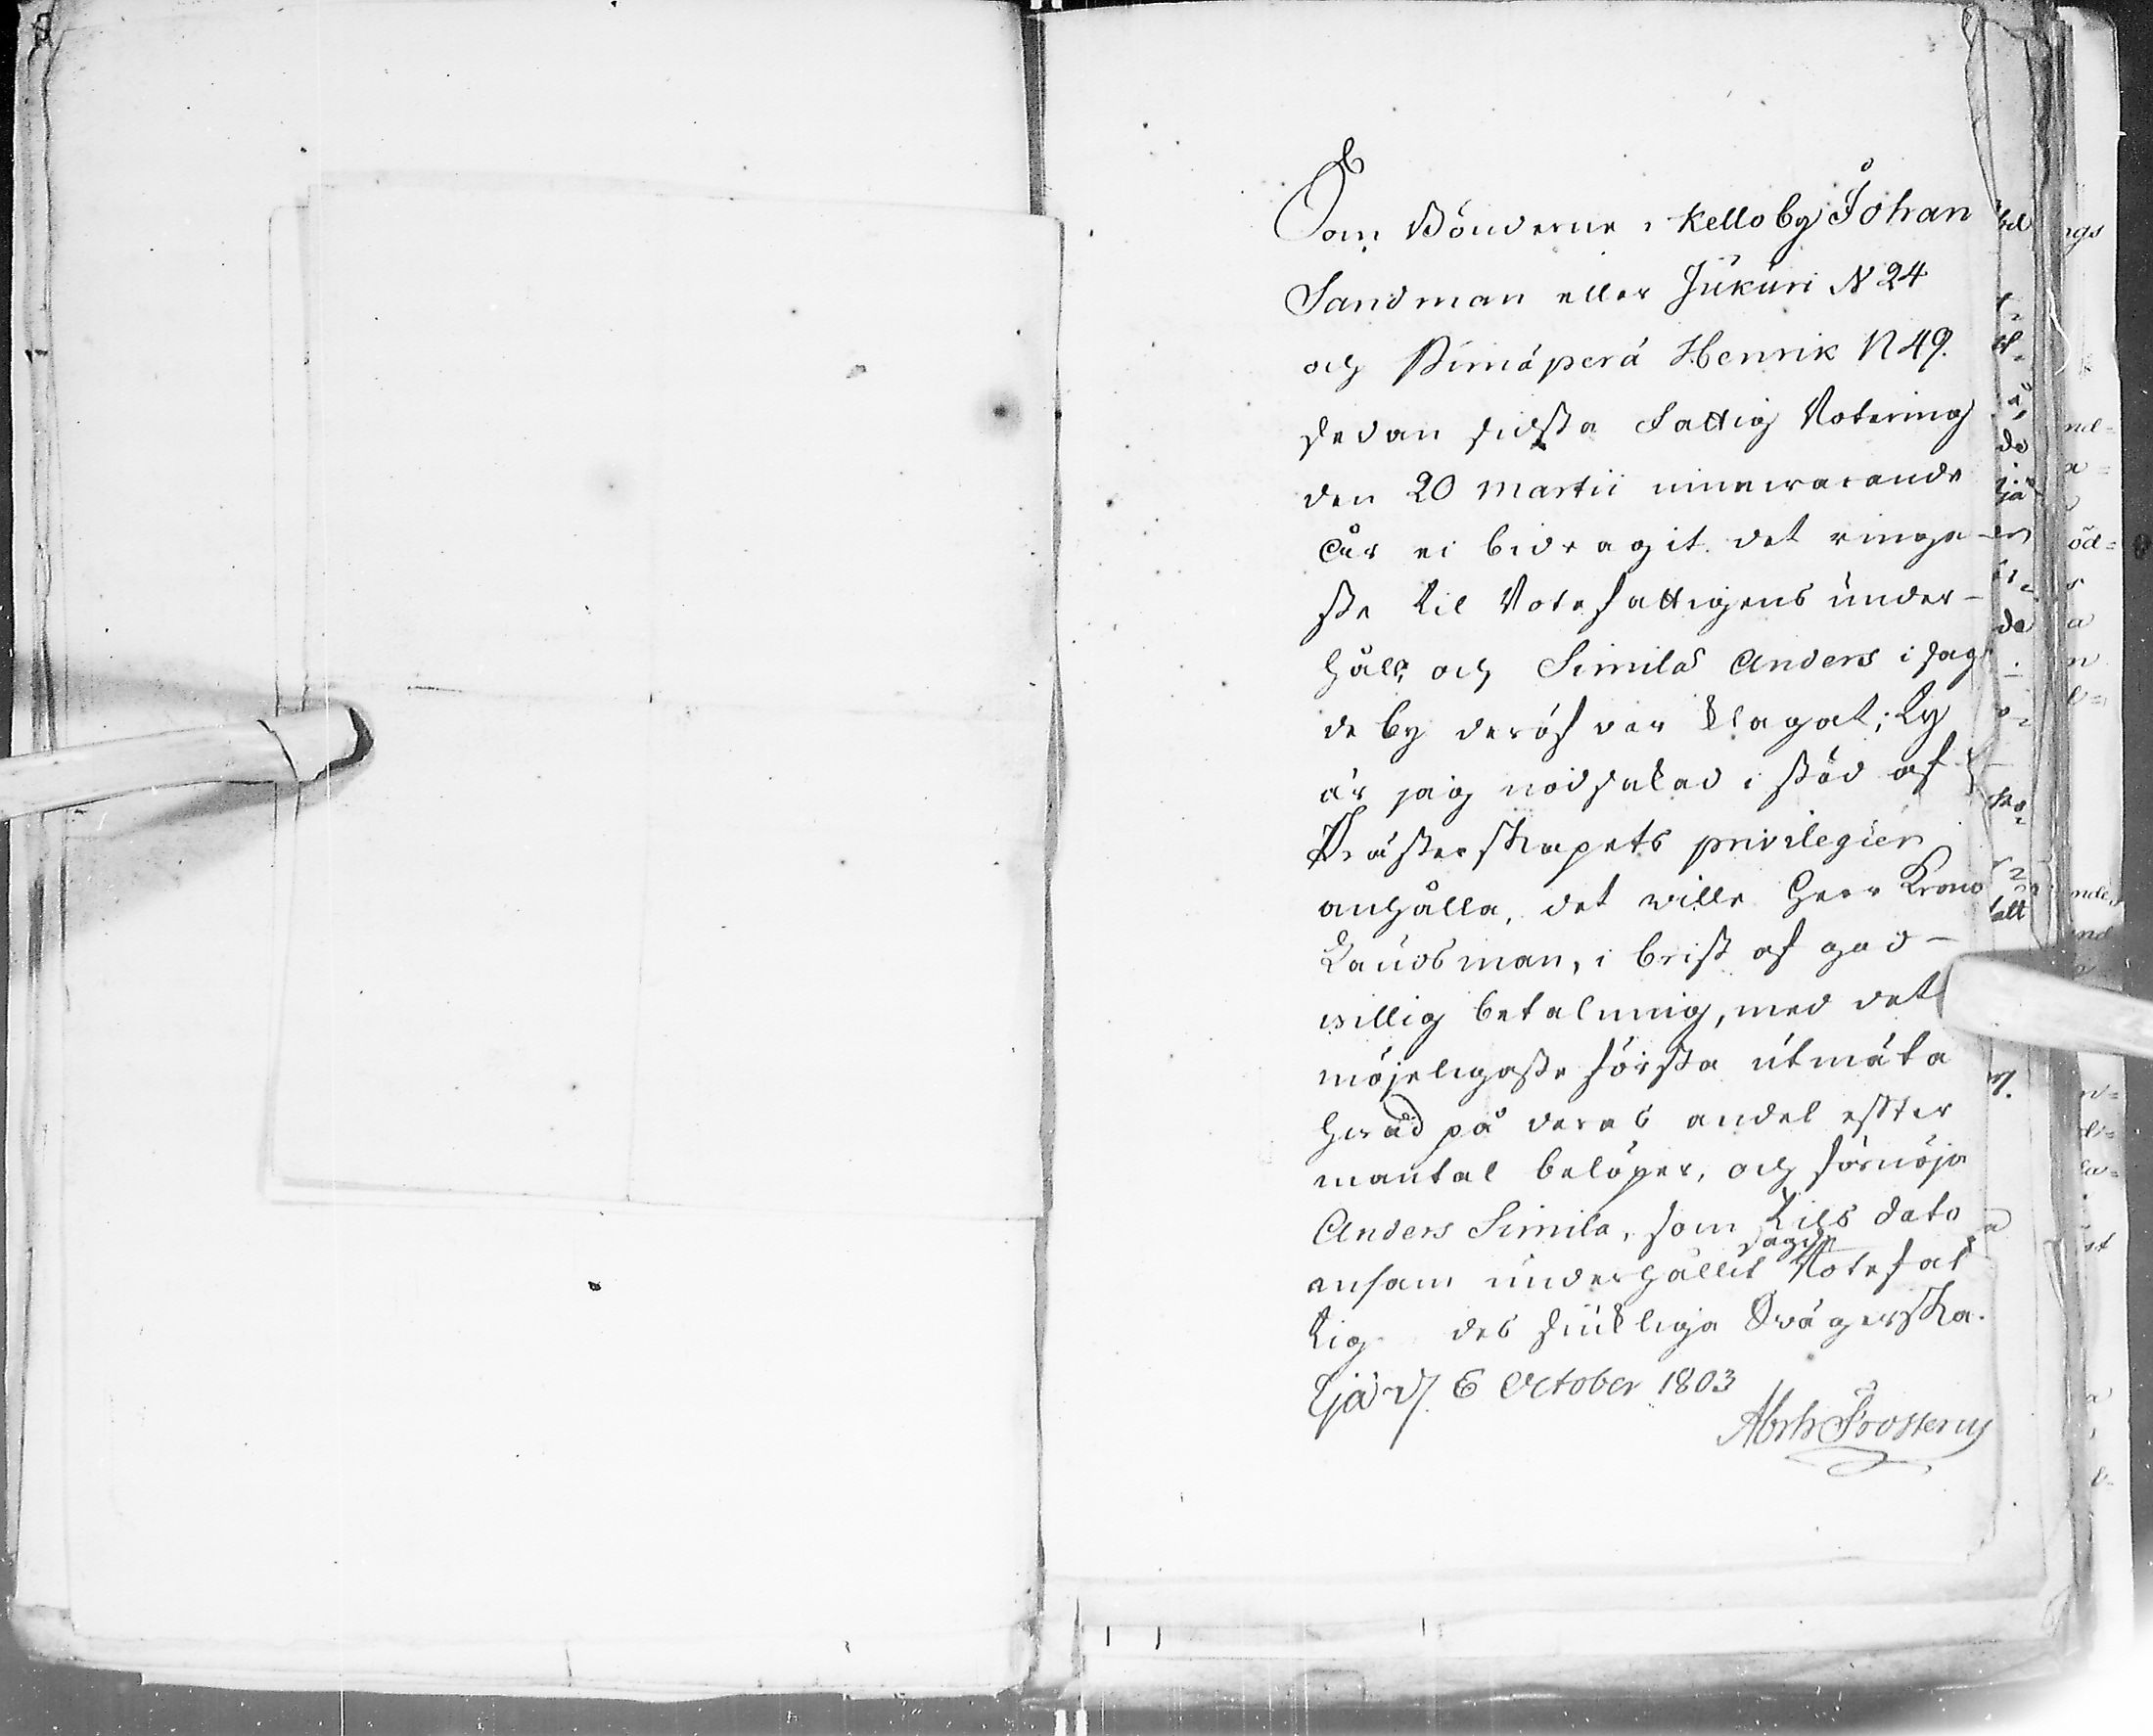 Som Bönderne i Kello by Johan
Sandman eller Jukuri N 24
och Pirnäperä Henrik N 49.
sedan sidsta Fattig Rotering
den 20 Martii innevarande
år ei bidragit det ringa-
ste til Rotefattigens under-
håll, och Similä Anders i sag-
de by deröfver klagat; Ty
är jag nödsakad i stöd af
Prästerskapets privilegier
anhålla, det wille Herr Krono
Länsman, i brist af god-
willig betalning, med det
möjeligaste första utmäta
hwad på deras andel efter
mantal belöper, och förnöja
Anders Simila, som tils dato
ensam underhållit sagde Rotefat
tig des siukliga Swägerska.
Ijå d. 6 October 1803
Abrh Frosterus